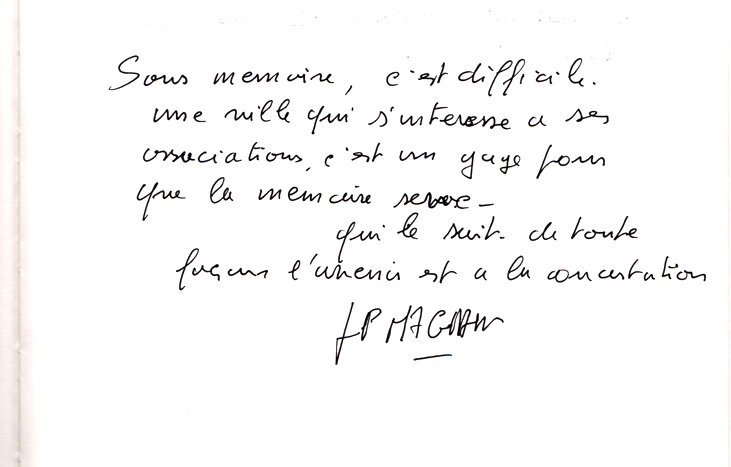 Sans memoire, c'est difficile.
une ville qui s'interesse a ses
associations, c'est un gage pour
que la memoire serve -
qui le sait. de toute
façons l'avenir est a la concertation
JP MAGNAN